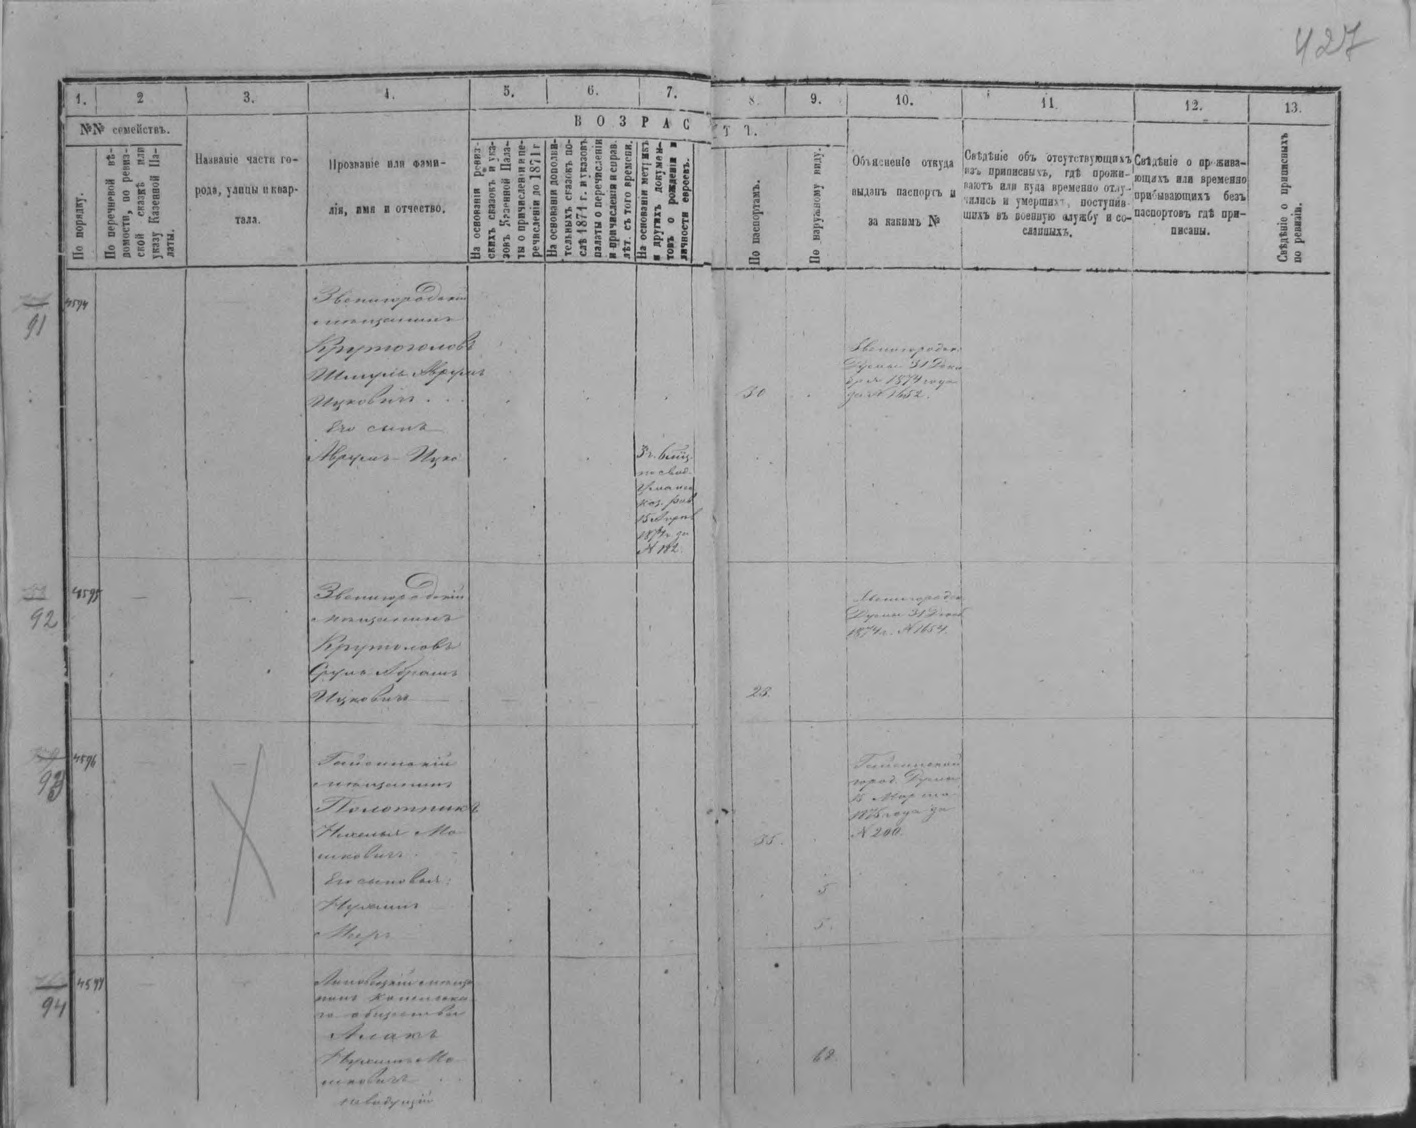 427
1. 2 3. 4. 5. 6. 7. 8. 9. 10. 11. 12. 13.
№№ семействъ.
По порядку.
По перечневой вѣ-
домости, по ревиз-
ской сказкѣ или
указу Казенной Па-
латы.
Названіе части го-
рода, улицы и квар-
тала.
Прозваніе или фами-
лія, имя и отчество.
ВОЗРАСТЪ.
На основаніи ревиз-
скихъ сказокъ и ука-
зовъ Казенной Пала-
ты о причисленіи и пе-
речисленіи до 1871 г
На основаніи дополни-
тельныхъ сказокъ по-
слѣ 1871 г. и указовъ
палаты о перечисленіи
и причисленіи и справ.
лѣт. съ того времени.
На основаніи метрикъ
и другихъ докумен-
товъ о рожденіи и
личности евреевъ.
По паспортамъ.
По наружному виду.
Объясненіе откуда
выданъ паспортъ и
за какимъ №
Свѣдѣніе объ отсутствующихъ
изъ приписныхъ, гдѣ прожи-
ваютъ или куда временно отлу-
чились и умершихъ, поступив-
шихъ въ военную службу и со-
сланныхъ.
Свѣдѣніе о прожива-
ющихъ или временно
прибывающихъ безъ
паспортовъ гдѣ при-
писаны.
Свѣдѣніе о приписныхъ
по ревизіи.
91
4594
Звенигородскій
мѣщанинъ
Крутоголовъ
Шмуль Аврумъ
Ицковичъ
Его сынъ
Аврумъ Ицко
15 Апрѣл
1874 г. за
N 192
30
Звенигородск
Думы 31 Дека
бря 1874 года
за N 1652.
92
4595
Звенигородскій
мѣщанинъ
Крутоловъ
Сруль Абрамъ
Ицковичъ
28.
Звенигородск
Думы 31 Декаб
1874 г. N 1654.
93
4596
Гайсинскій
мѣщанинъ
Полотникъ
Мо
шковичъ
Его сыновья:
Меръ
35.
5
5.
Гайсинской
город. Думы
15 Марта
1875 года за
N 200.
94
4597
Липовецкій мѣща
нинъ
го общества
Мо
шковичъ
невидущій
68